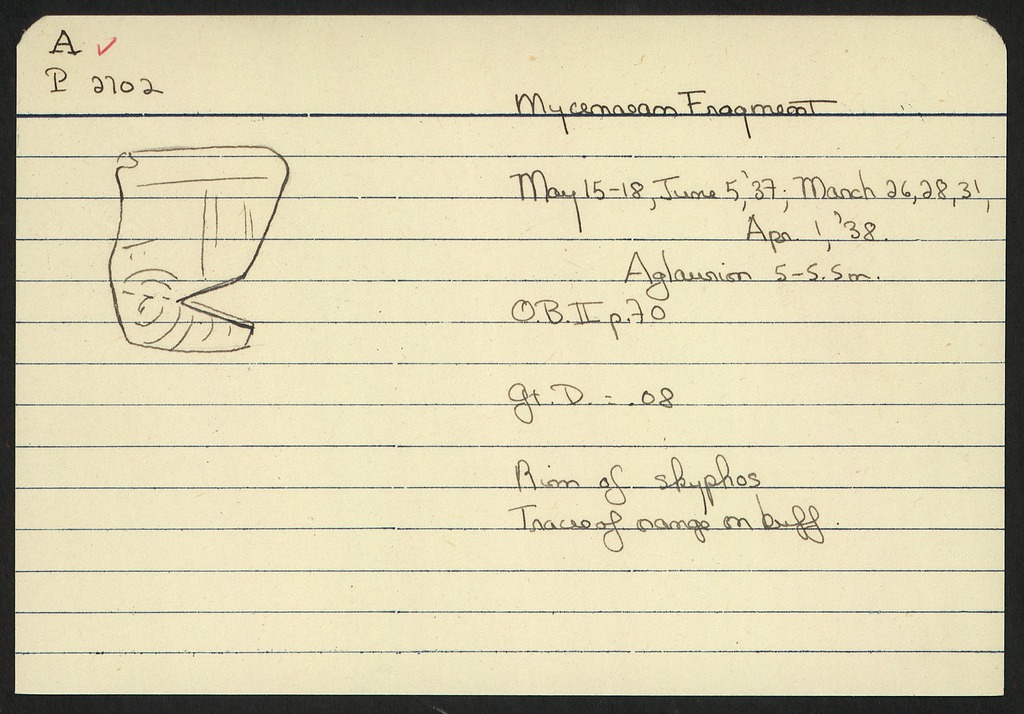 A ✓
P 2702
Mycenaean Fragment
May 15-18, June 5, '37; March 26, 28, 31,
Apr. 1, '38.
Aglaurion 5-5.5m.
O.B. II p.70
Gt. D. = .08
Rim of skyphos
Traces of orange on buff.